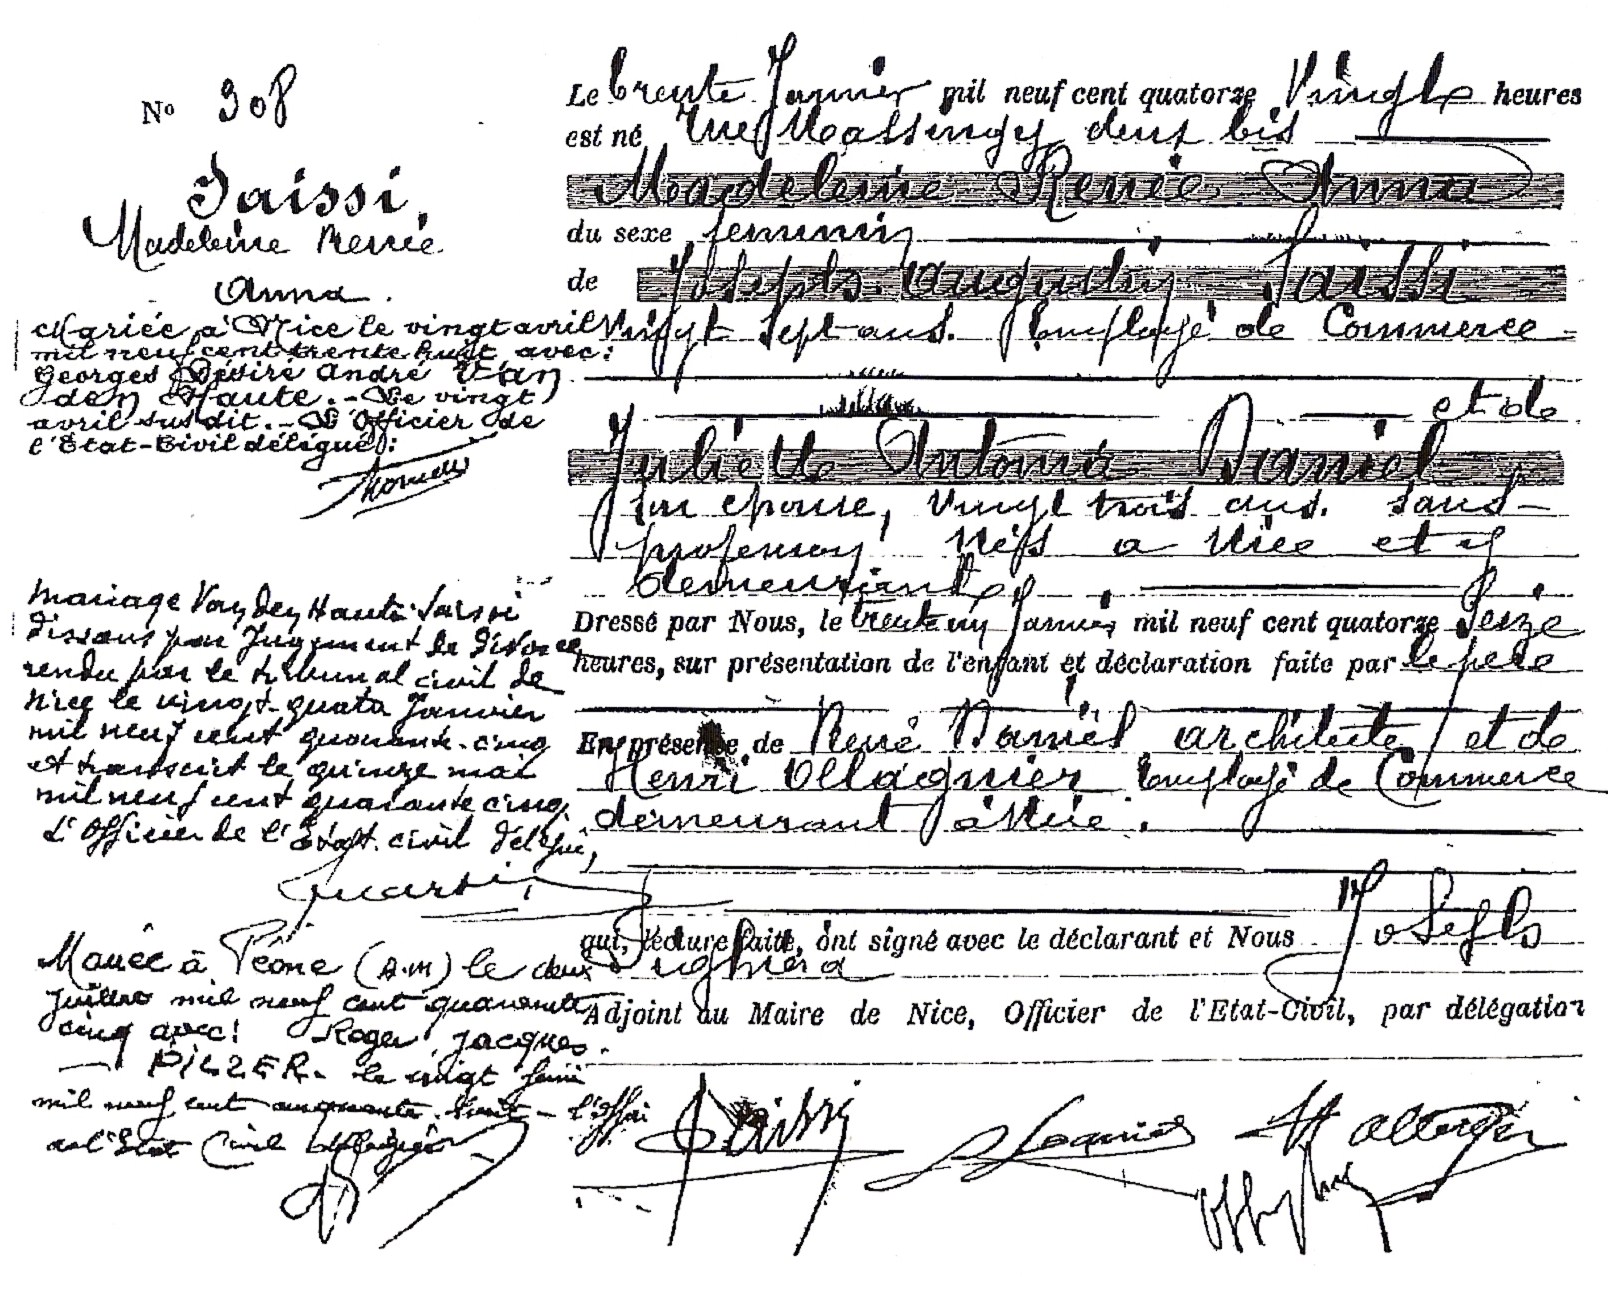 No 308
Saissi,
Madeleine Renée
Anna.
Mariée à Nice le vingt avril
mil neuf cent trente huit avec:
Georges Désiré André Van
den Haute. - Le vingt
avril susdit. - L'Officier de
l'Etat-Civil délégué:
Mariage Van den Haute-Saissi
dissous par Jugement de divorce
rendu par le tribunal civil de
Nice le vingt-quatre Janvier
mil neuf cent quarante-cinq
et transcrit le quinze mai
mil neuf cent quarante cinq,
L'Officier de l'Etat civil délégué,
Mariée à Péone (A.M) le deux
Juillet mil neuf cent quarante
cinq avec: Roger Jacques
- PILZER. le vingt Juin
mil neuf cent cinquante huit - l'Offi
de l'Etat Civil délégué
Le trente Janvier mil neuf cent quatorze Vingt heures
est né Rue Massingy deux bis
Madeleine Renée Anna
du sexe feminin
de Joseph Augustin Saissi
vingt sept ans. Employé de Commerce
et de
Juliette Antonia Daniel
son épouse, vingt trois ans. sans
profession Nés a Nice et y
demeurant
Dressé par Nous, le trente un Janvier mil neuf cent quatorze Seize
heures, sur présentation de l'enfant et déclaration faite par le père
En présence de René Daniel architecte et de
Henri Ollagnier Employé de Commerce
demeurant à Nice.
qui, lecture faite, ont signé avec le déclarant et Nous Joseph
Adjoint au Maire de Nice, Officier de l'Etat-Civil, par délégation
Saissi